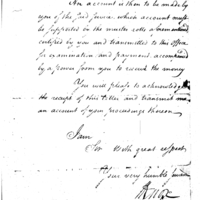 An account is then to be made by
you of the said which account must
be supported by the muster rolls aforementioned
certified by you and transmitted to this Office
for examination and payment, accompanied
by a power from you to receive the money
You will please to acknowledge
the receipt of this Letter and transmit me
an account of your proceedings thereon
I am
Sir with great respect
Your very humble servant